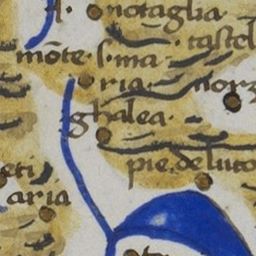 notaglia
castel
mōte·s·ma
ria· norz
ghalea·
pie·de·luco
eti
aria